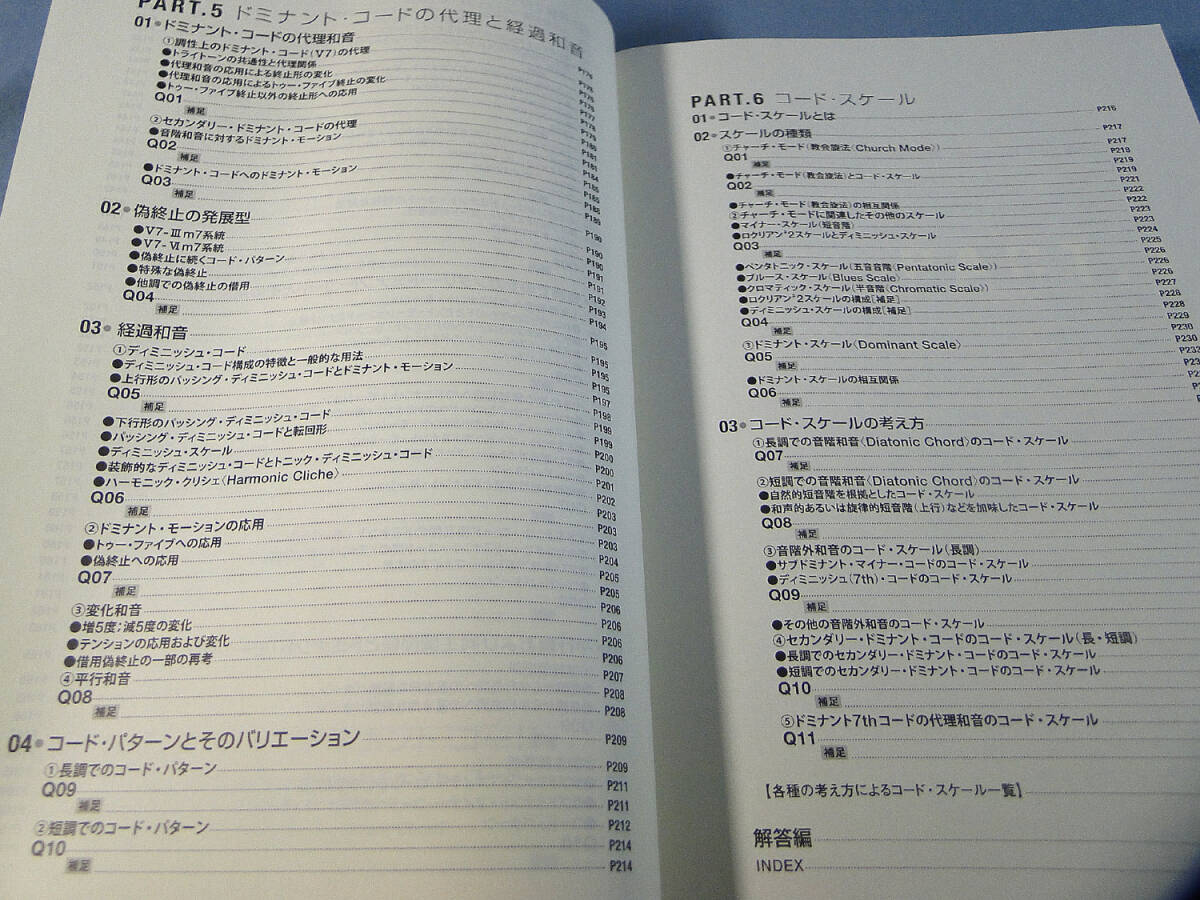 PART.5 ドミナント・コードの代理と経過和音
01●ドミナント・コードの代理和音 P176
①調性上のドミナント・コード(V7)の代理
●トライトーンの共通性と代理関係
●代理和音の応用による終止形の変化
●代理和音の応用によるトゥー・ファイブ終止の変化
●トゥー・ファイブ終止以外の終止形への応用
Q01
補足
②セカンダリー・ドミナント・コードの代理
●音階和音に対するドミナント・モーション
Q02
補足
●ドミナント・コードへのドミナント・モーション
Q03
補足
02●偽終止の発展型 P190
●V7-Ⅲm7系統 P190
●V7-Ⅵm7系統 P190
●偽終止に続くコード・パターン P191
●特殊な偽終止 P191
●他調での偽終止の借用 P192
Q04 P193
補足 P194
03●経過和音 P195
①ディミニッシュ・コード P195
●ディミニッシュ・コード構成の特徴と一般的な用法 P195
●上行形のパッシング・ディミニッシュ・コードとドミナント・モーション P195
Q05 P197
補足 P198
●下行形のパッシング・ディミニッシュ・コード P199
●パッシング・ディミニッシュ・コードと転回形 P199
●ディミニッシュ・スケール P200
●装飾的なディミニッシュ・コードとトニック・ディミニッシュ・コード P200
●ハーモニック・クリシェ〈Harmonic Cliche〉 P201
Q06 P202
補足 P203
②ドミナント・モーションの応用 P203
●トゥー・ファイブへの応用 P203
●偽終止への応用 P204
Q07 P205
補足 P205
③変化和音 P206
●増5度;減5度の変化 P206
●テンションの応用および変化 P206
●借用偽終止の一部の再考 P206
④平行和音 P207
Q08 P208
補足 P208
04●コード・パターンとそのバリエーション P209
①長調でのコード・パターン P209
Q09 P211
補足 P211
②短調でのコード・パターン P212
Q10 P214
補足 P214
PART.6 コード・スケール
01●コード・スケールとは P216
02●スケールの種類 P217
①チャーチ・モード(教会旋法〈Church Mode〉) P217
Q01 P218
補足 P219
●チャーチ・モード(教会旋法)とコード・スケール P219
Q02 P221
補足 P222
●チャーチ・モード(教会旋法)の相互関係 P222
②チャーチ・モードに関連したその他のスケール P223
●マイナー・スケール(短音階) P223
●ロクリアン♮2スケールとディミニッシュ・スケール P224
Q03 P225
補足 P226
●ペンタトニック・スケール(五音音階〈Pentatonic Scale〉) P226
●ブルース・スケール〈Blues Scale〉 P226
●クロマティック・スケール(半音階〈Chromatic Scale〉) P227
●ロクリアン♮2スケールの構成[補足] P228
●ディミニッシュ・スケールの構成[補足] P228
Q04 P229
補足 P230
③ドミナント・スケール〈Dominant Scale〉 P230
Q05
補足
●ドミナント・スケールの相互関係
Q06
補足
03●コード・スケールの考え方
①長調での音階和音〈Diatonic Chord〉のコード・スケール
Q07
補足
②短調での音階和音〈Diatonic Chord〉のコード・スケール
●自然的短音階を根拠としたコード・スケール
●和声的あるいは旋律的短音階(上行)などを加味したコード・スケール
Q08
補足
③音階外和音のコード・スケール(長調)
●サブドミナント・マイナー・コードのコード・スケール
●ディミニッシュ(7th)・コードのコード・スケール
Q09
補足
●その他の音階外和音のコード・スケール
④セカンダリー・ドミナント・コードのコード・スケール(長・短調)
●長調でのセカンダリー・ドミナント・コードのコード・スケール
●短調でのセカンダリー・ドミナント・コードのコード・スケール
Q10
補足
⑤ドミナント7thコードの代理和音のコード・スケール
Q11
補足
【各種の考え方によるコード・スケール一覧】
解答編
INDEX